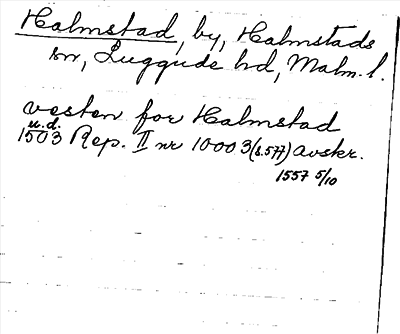 Halmstad, by, Halmstads
sn, Luggude hd, Malm.l.
vesten for Halmstad
u.d.
1503 Rep. II nr 10003 (s.577) avskr.
1557 5/10